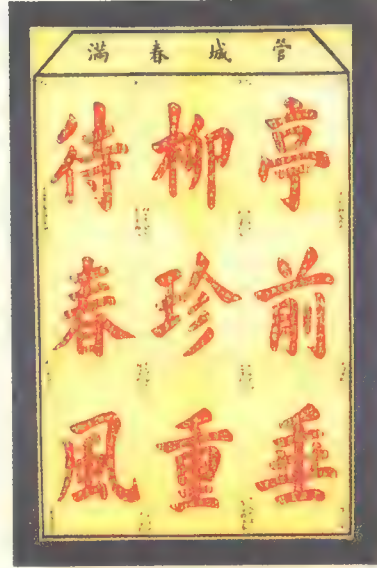 管城春满
亭前垂
柳珍重
待春風